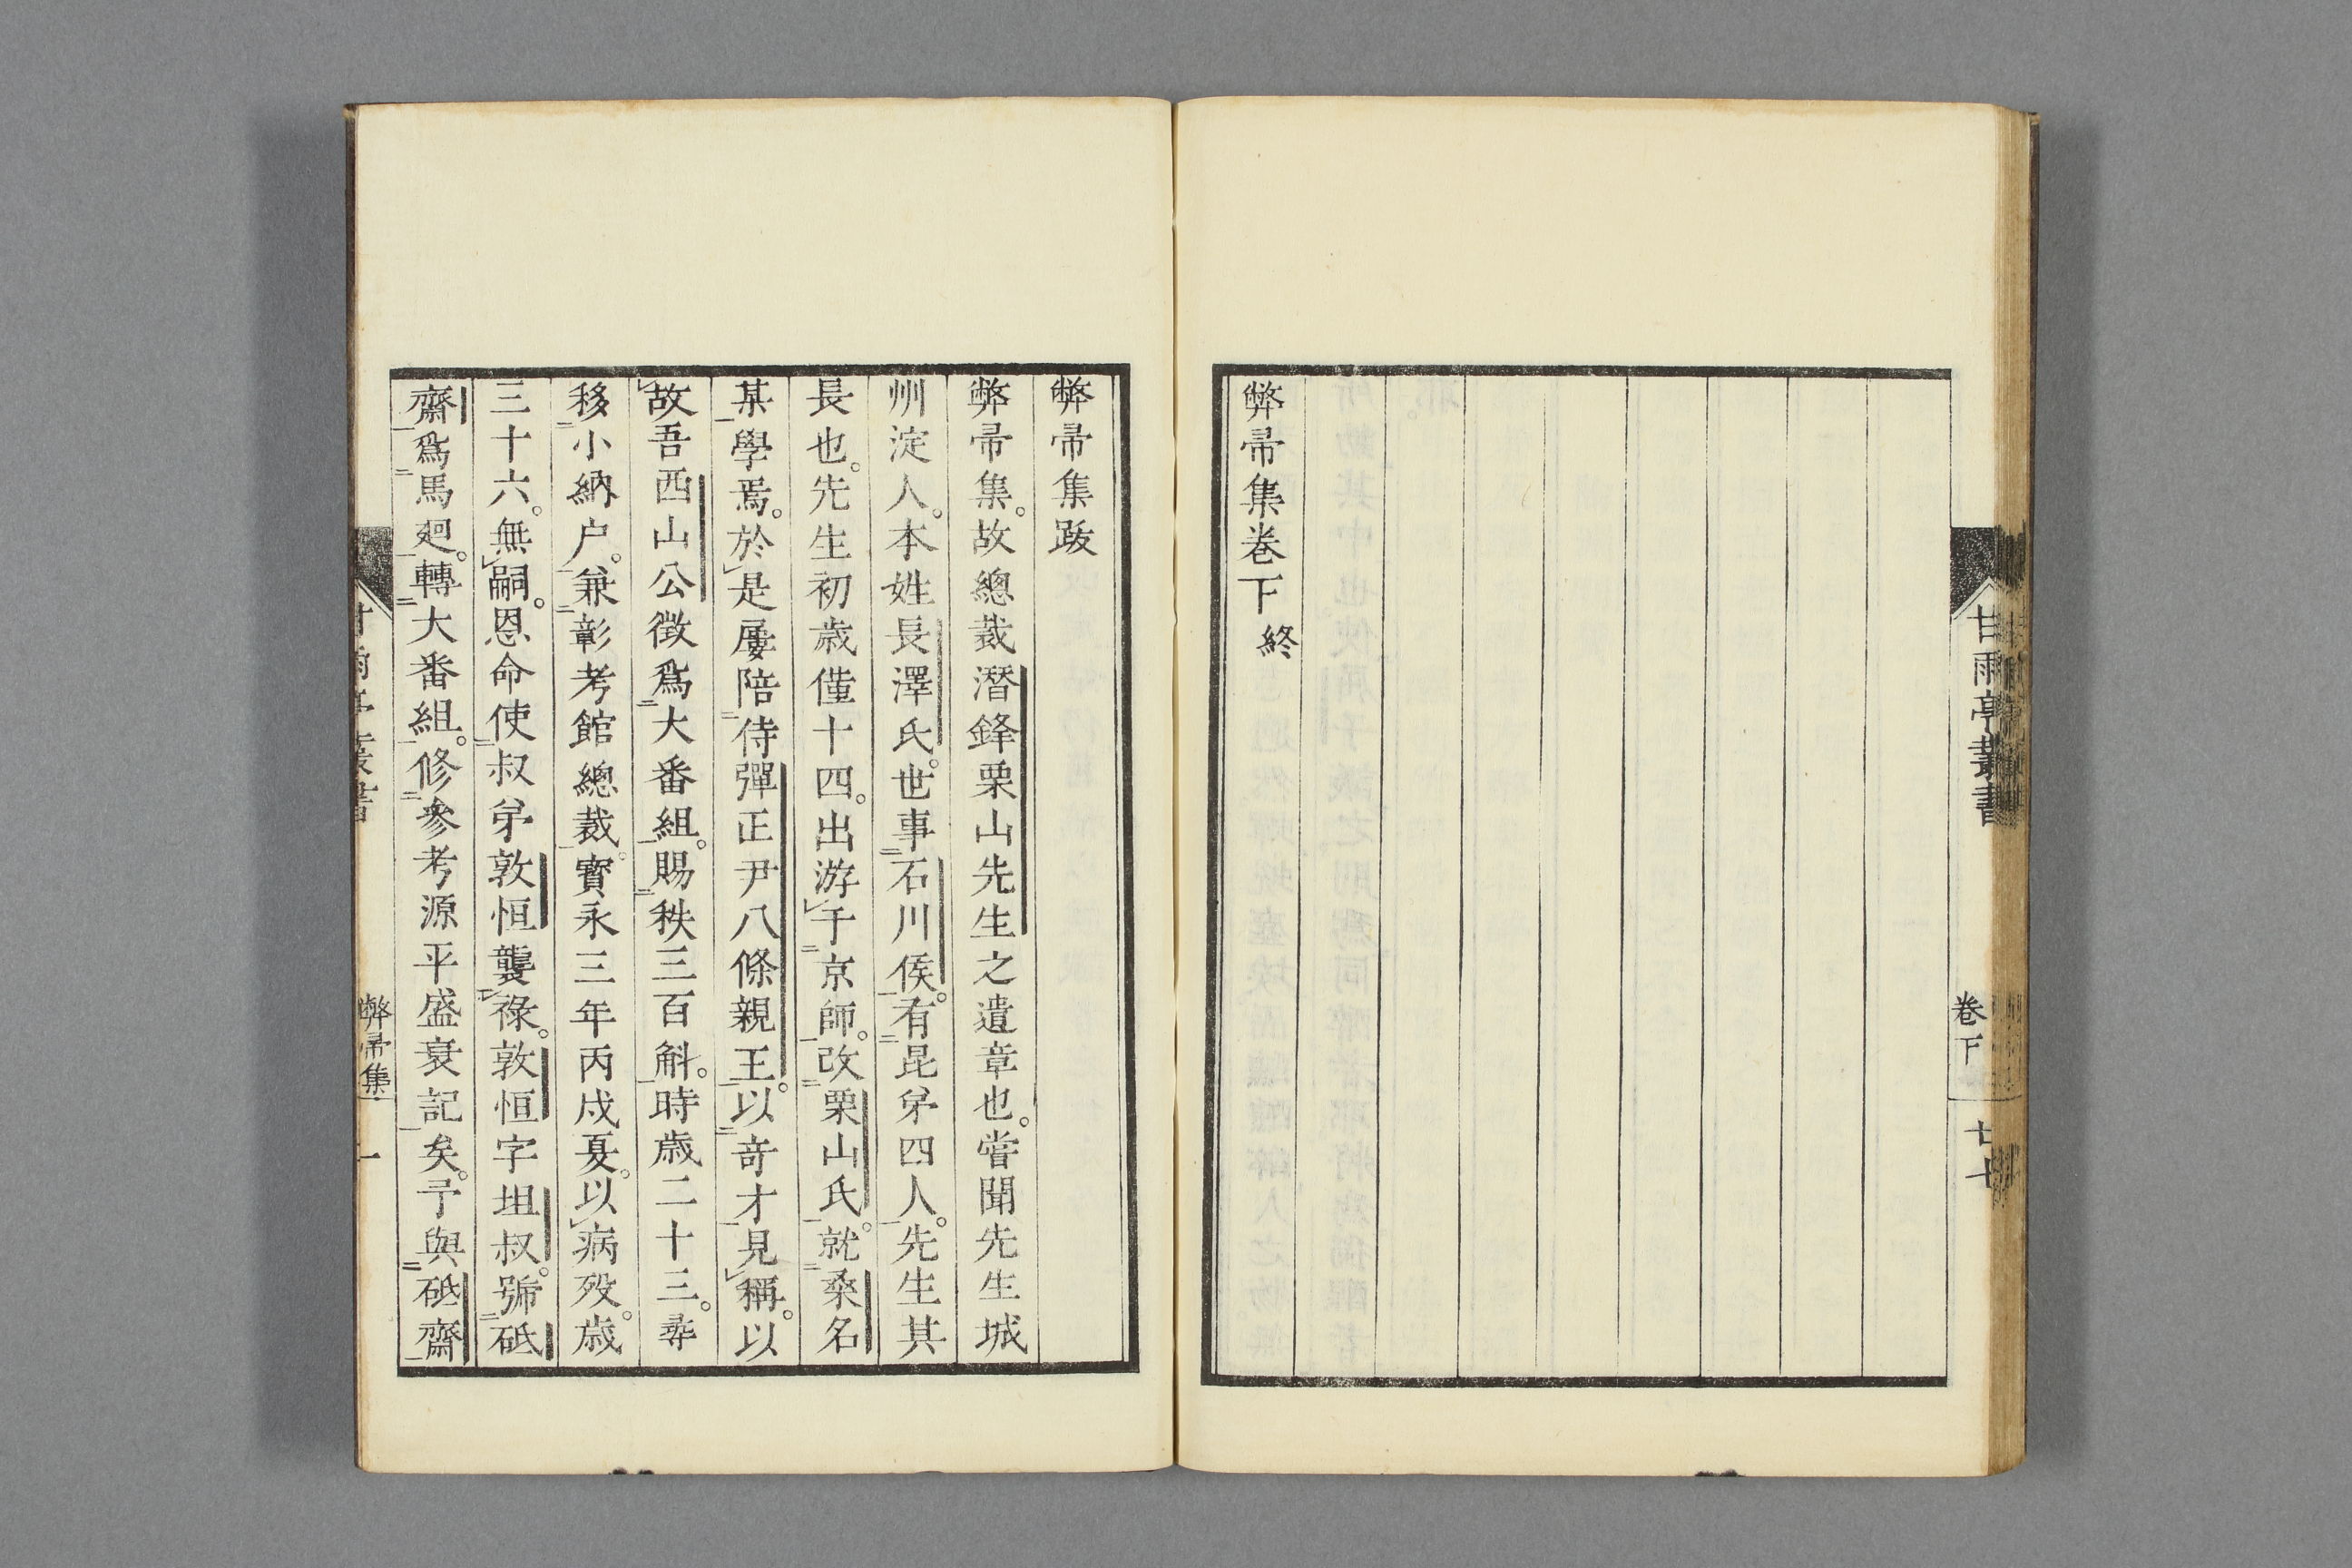 甘雨亭叢書
卷下
廿七
弊帚集卷下 終
弊帚集跋
弊帚集。故總裁潛鋒栗山先生之遺章也。嘗聞先生城
州淀人。本姓長澤氏。世事石川侯。有昆弟四人。先生其
長也。先生初歳僅十四。出游于京師。改栗山氏。就桑名
某學焉。於是屢陪侍彈正尹八條親王。以竒才見稱。以
故吾西山公徴爲大番組。賜秩三百斛。時歳二十三。尋
移小納户。兼彰考館總裁。寳永三年丙戌夏。以病歿。歳
三十六。無嗣。恩命使叔弟敦恒襲祿。敦恒字坦叔。號砥
齋爲馬廻。轉大番組。修參考源平盛衰記矣。予與砥齋
甘雨亭叢書
弊帚集
一